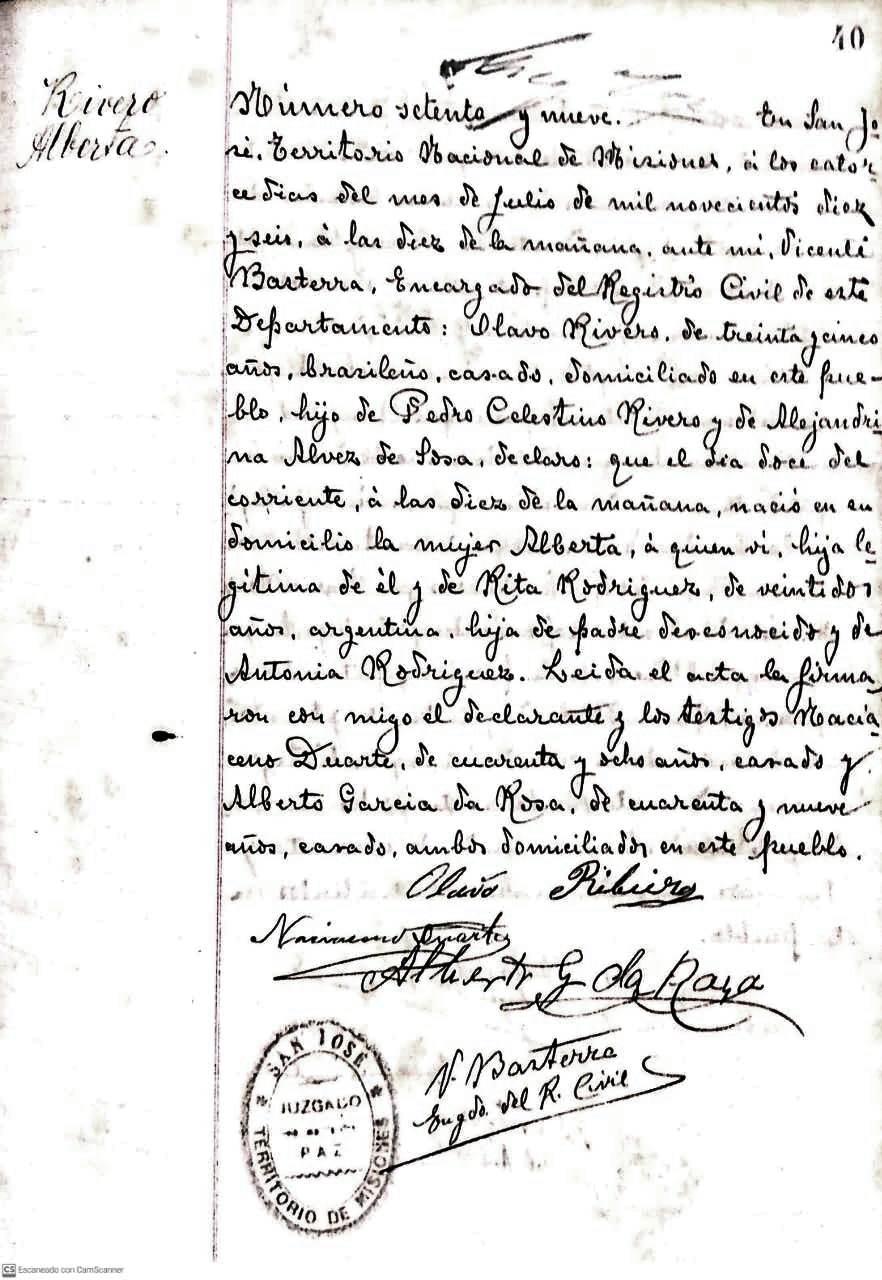 40
Rivero
Alberta.
Número setenta y nueve. En San Jo-
sé, Territorio Nacional de Misiones, á los cator-
ce dias del mes de Julio de mil novecientos diez
y seis, á las diez de la mañana, ante mi, Vicente
Basterra, Encargado del Registro Civil de este
Departamento: Olavo Rivero, de treinta y cinco
años, brasileño, casado, domiciliado en este pue-
blo, hijo de Pedro Celestino Rivero y de Alejandri-
na Alvez de Sosa, declaro: que el dia doce del
corriente, á las diez de la mañana, nació en su
domicilio la mujer Alberta, á quien vi, hija le-
gitima de él y de Rita Rodriguez, de veintidos
años, argentina, hija de padre desconocido y de
Antonia Rodriguez. Leida el acta la firma-
ron con migo el declarante y los testigos Nacia-
ceno Duarte, de cuarenta y ocho años, casado y
Alberto Garcia da Rosa, de cuarenta y nueve
años, casado, ambos domiciliados en este pueblo.
Olavo Ribeiro
Duarte
Alberto G da Roza
V. Basterra
Engdo. del R. Civil
SAN JOSE.
JUZGADO
PAZ
TERRITORIO DE MISIONES
CS Escaneado con CamScanner